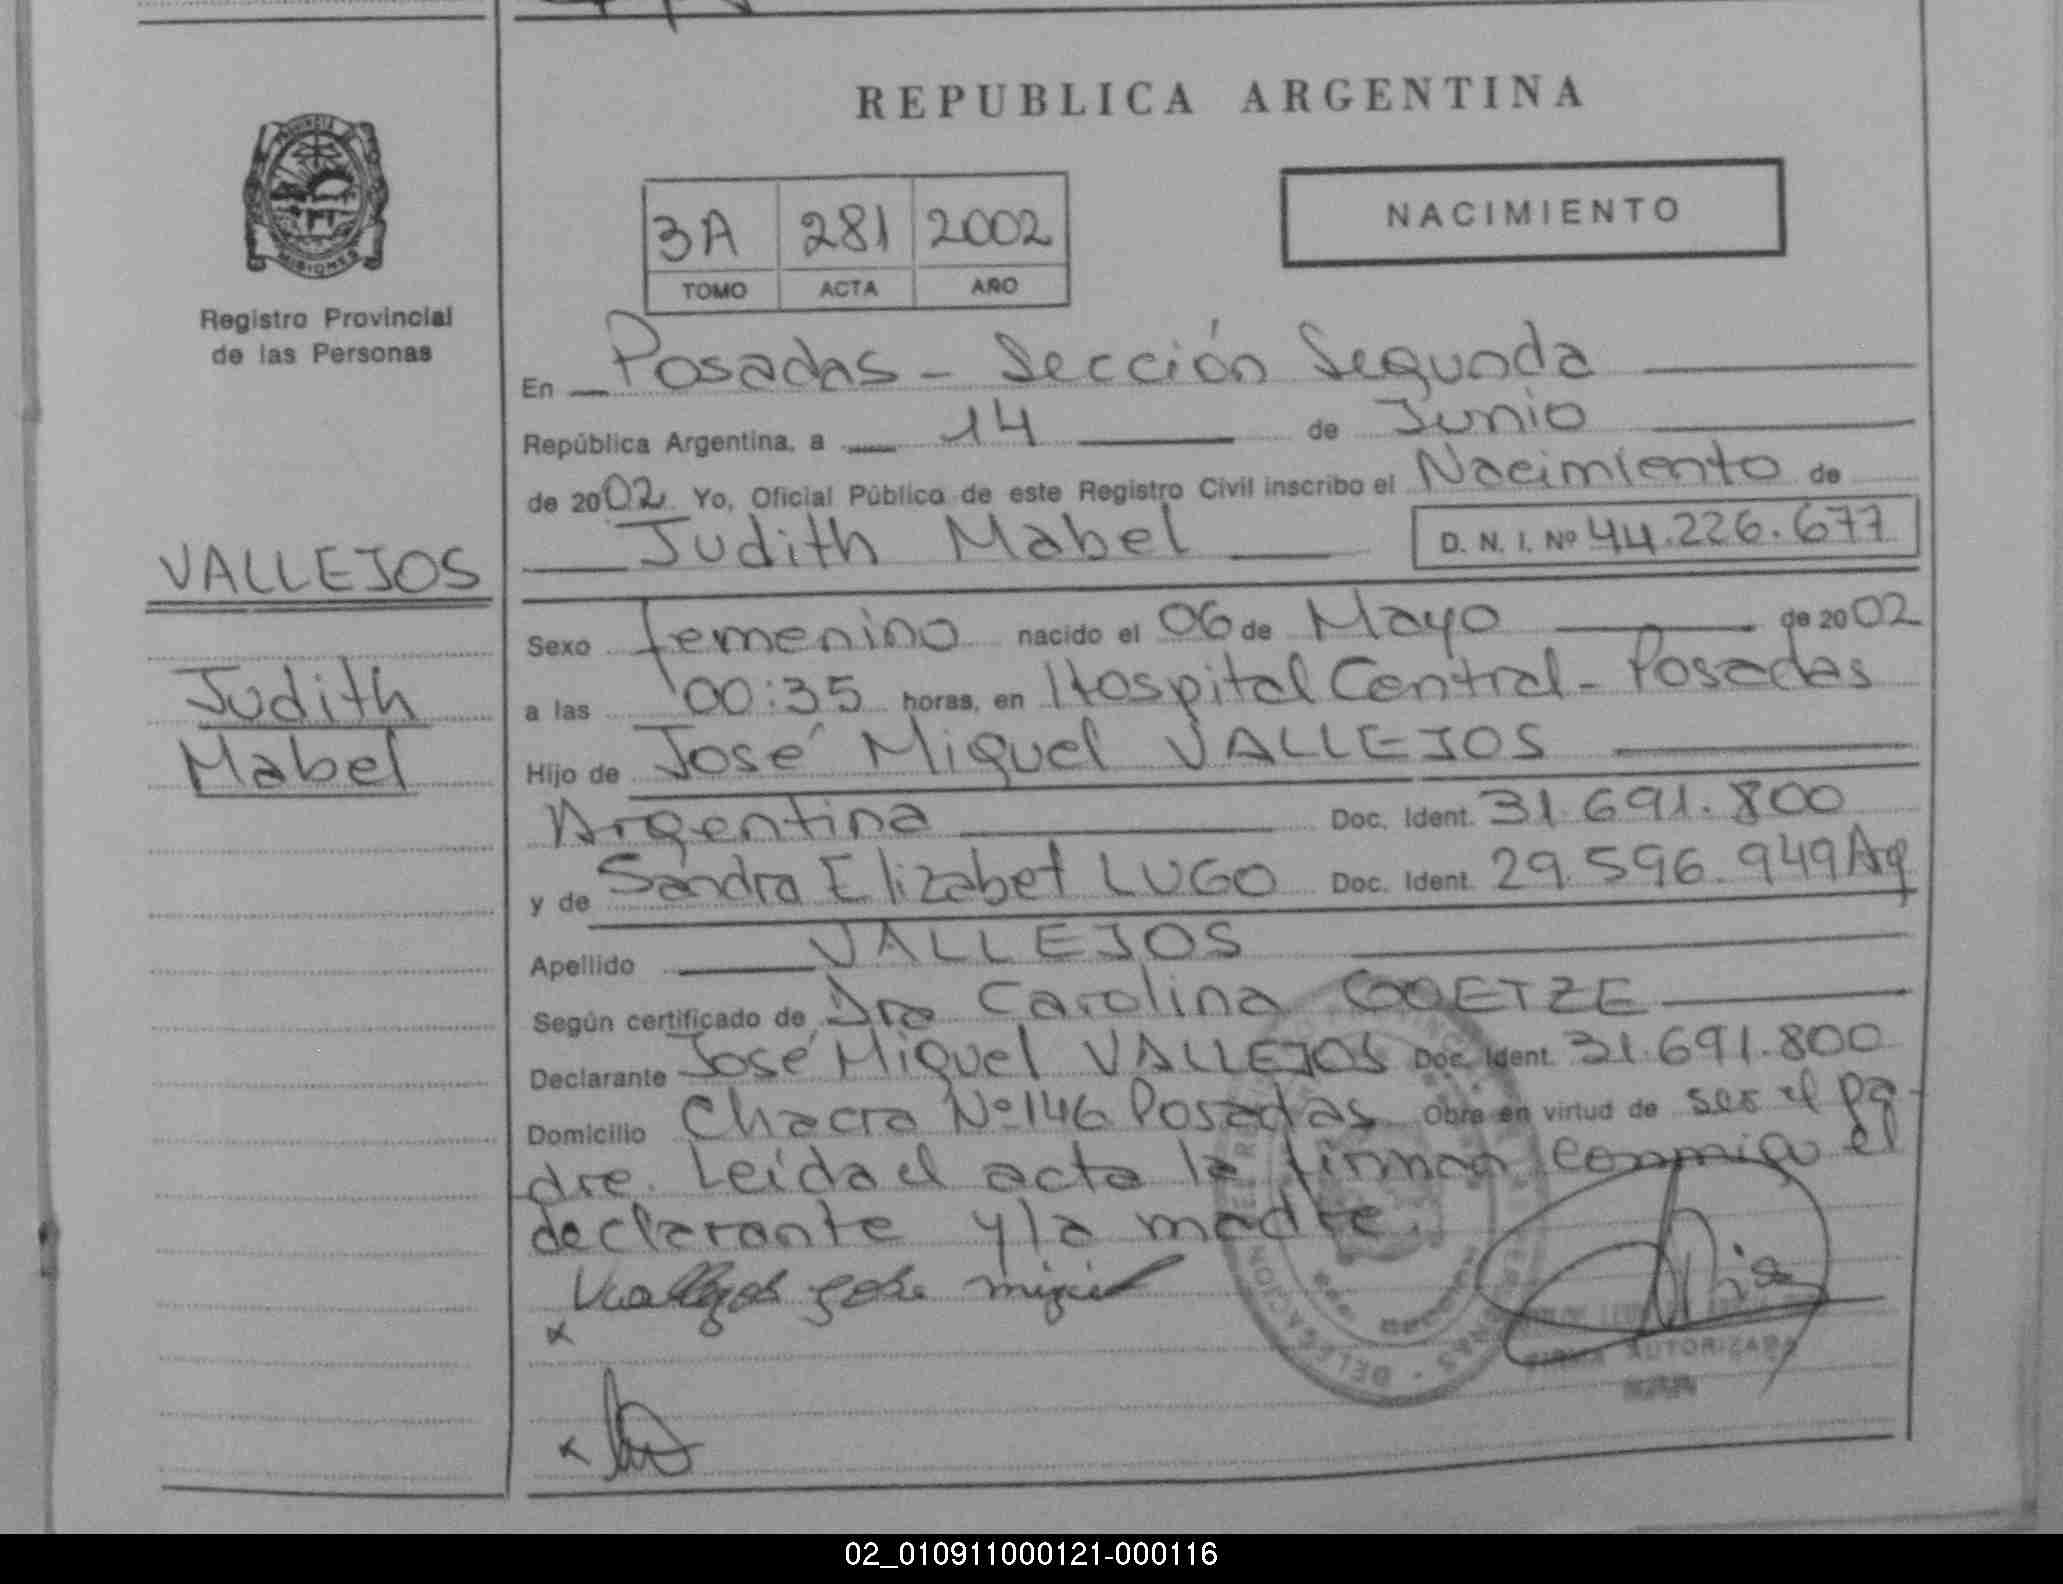 REPUBLICA ARGENTINA
PROVINCIA DE
MISIONES
Registro Provincial
de las Personas
3A 281 2002
TOMO ACTA AÑO
NACIMIENTO
En Posadas - Sección Segunda
República Argentina, a 14 de Junio
de 2002 Yo, Oficial Público de este Registro Civil inscribo el Nacimiento de
Judith Mabel D. N. I. Nº 44.226.677
VALLEJOS
Judith
Mabel
Sexo femenino nacido el 06 de Mayo de 2002
a las 00:35 horas, en Hospital Central - Posadas
Hijo de José Miguel VALLEJOS
Argentina Doc. Ident. 31.691.800
y de Sandra Elizabet LUGO Doc. Ident. 29.596.949 Arg
Apellido VALLEJOS
Según certificado de Dra Carolina GOETZE
Declarante José Miguel VALLEJOS Doc. Ident. 31.691.800
Domicilio Chacra Nº 146 Posadas Obra en virtud de ser el pa-
dre. Leída el acta la firman conmigo el
declarante y la madre.
Vallejos José miguel
FIRMA AUTORIZADA
02_010911000121-000116